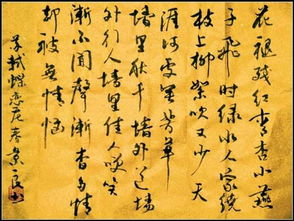 花褪残红青杏小燕
子飛时绿水人家绕
枝上柳絮吹又少天
涯何處無芳草
墙里秋千墙外道墙
外行人墙里佳人笑
漸不聞聲漸杳多情
却被無情恼
苏轼蝶恋花春景